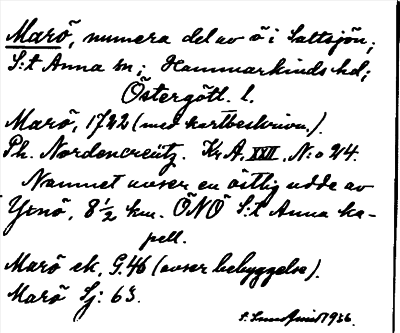 Marö, numera del av ö i Saltsjön;
S:t Anna sn; Hammarkinds hd;
Östergötl. l.
Marö, 1722 (med kartbeskrivn.).
Ph. Nordencreütz. Kr A, XXII, N:o 24.
Namnet avser en östlig udde av
Yxnö, 8 1/2 km. ÖNÖ S:t Anna ka-
pell.
Marö ek. G.46 (avser bebyggelse).
Marö Sj: 63.
1936.